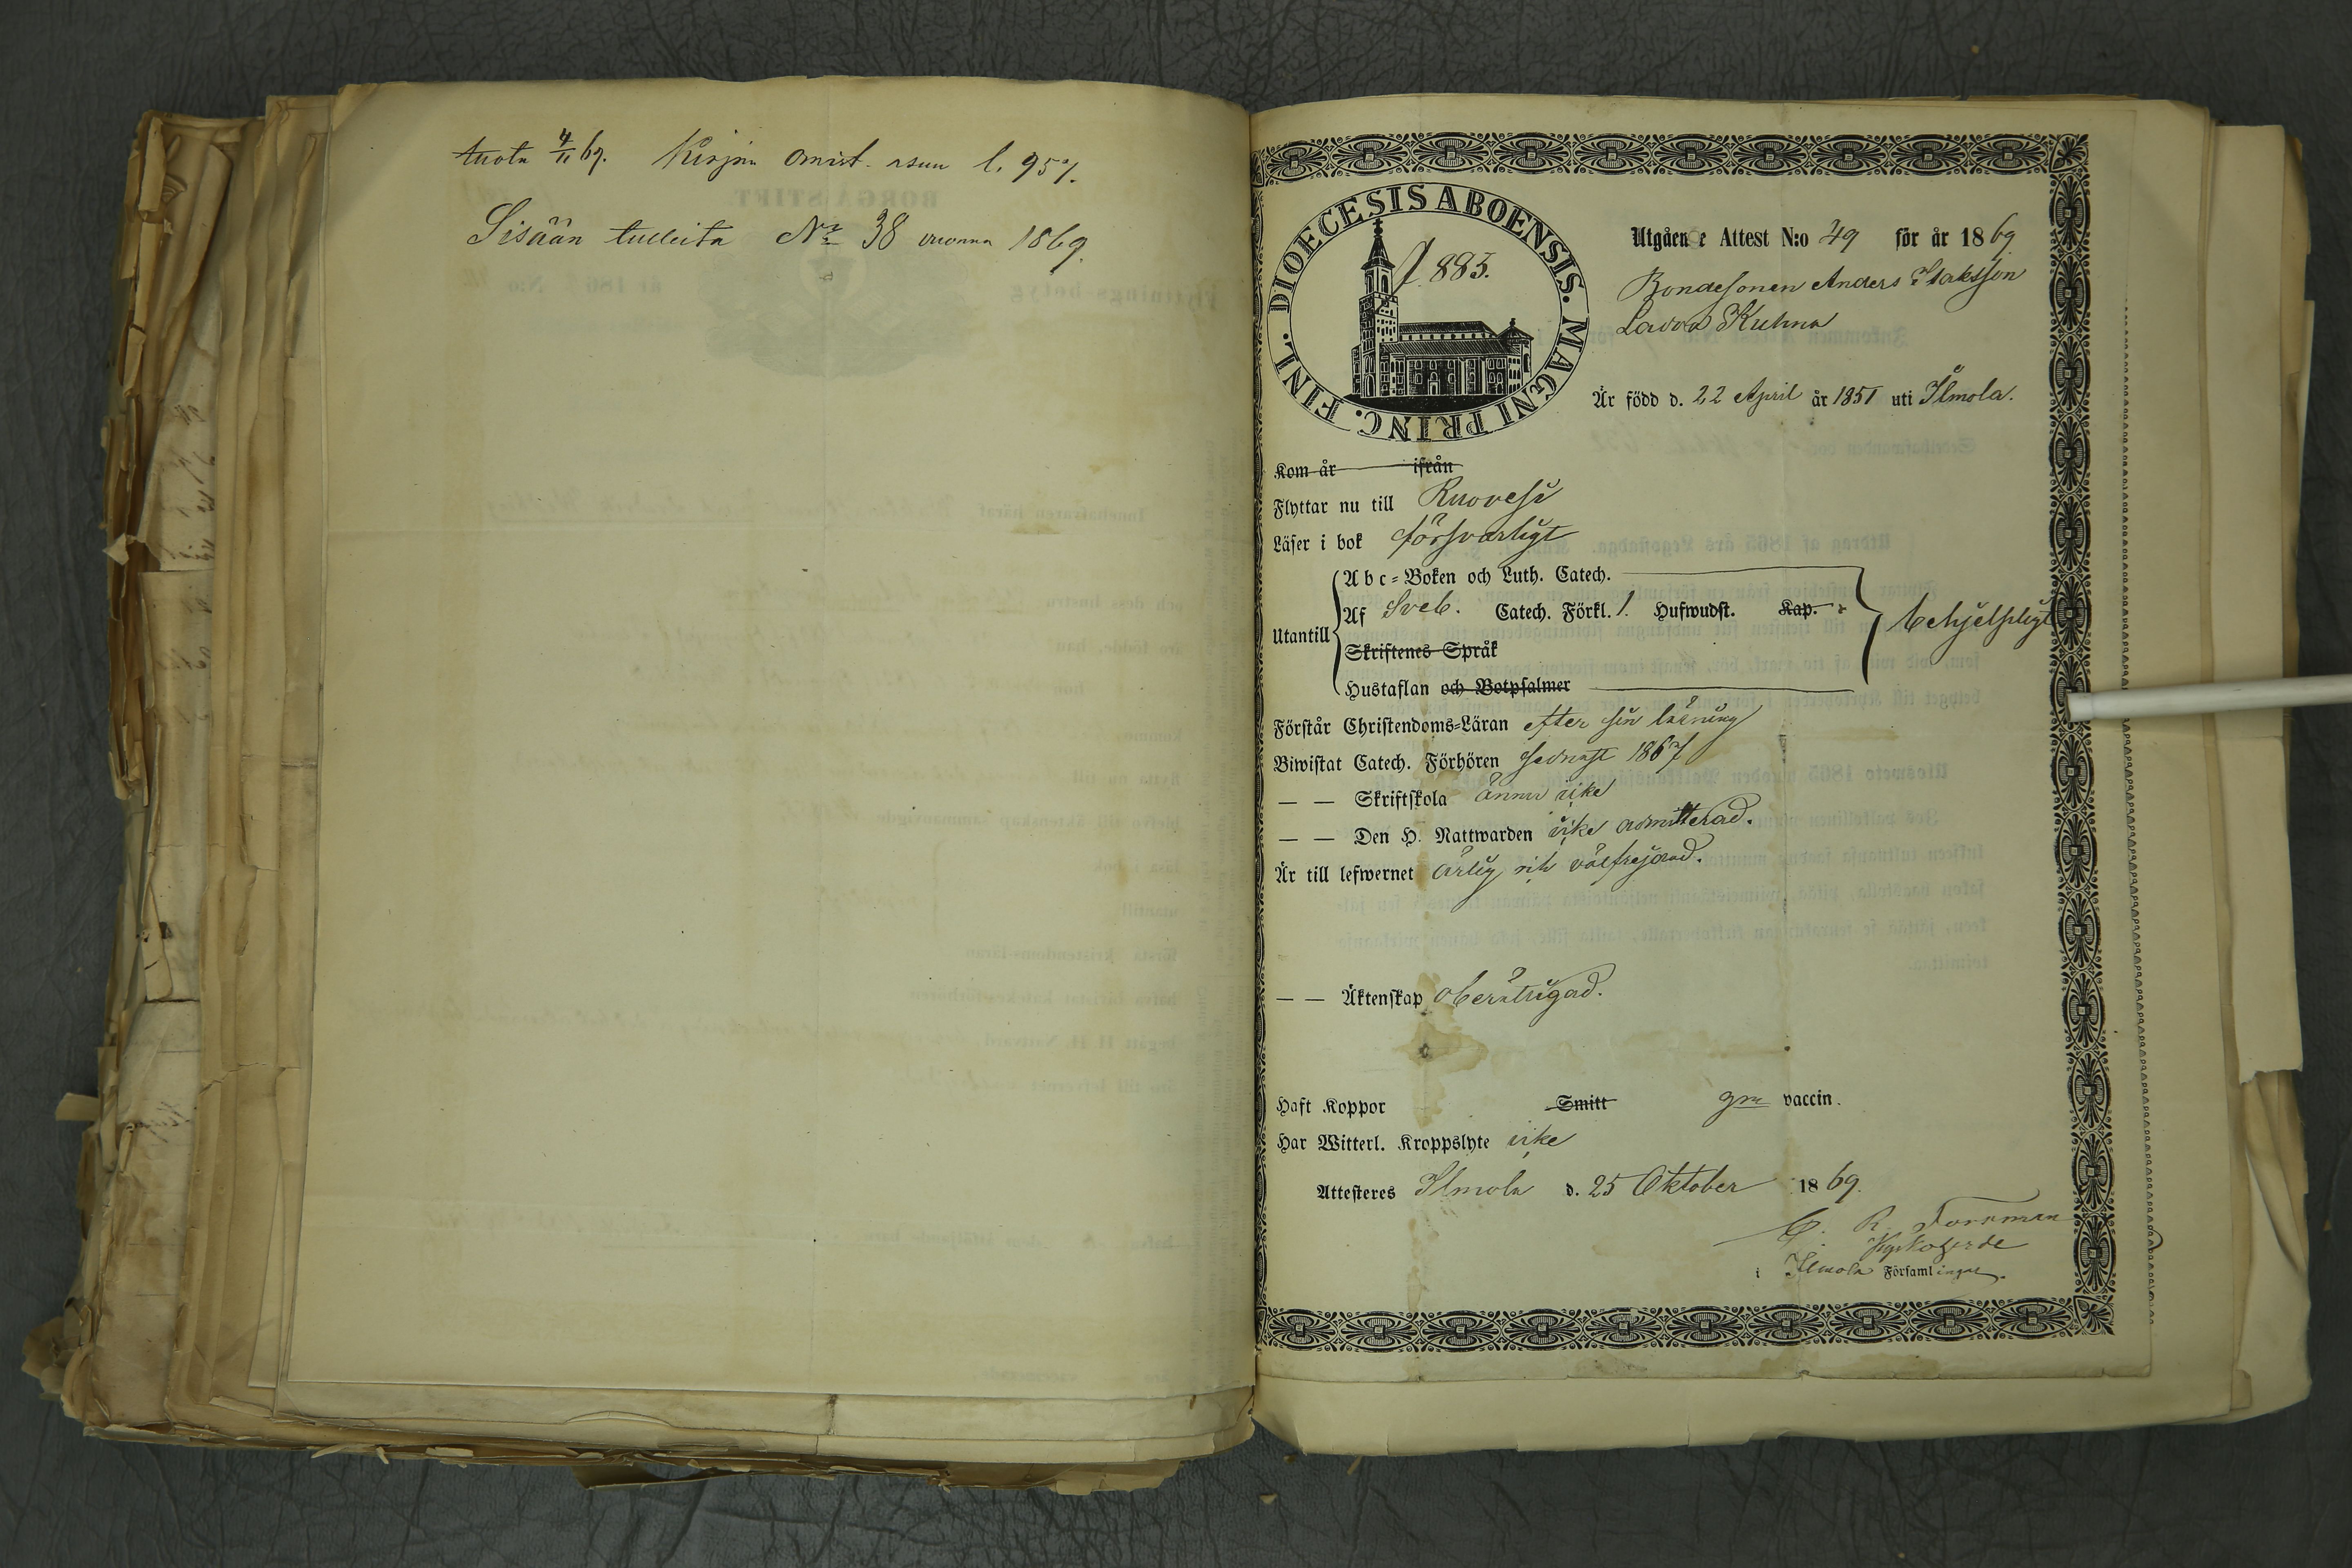 tuotu 4/11 69. Kirjan omist. asuu l. 957.
Sisään tulleita No 38 vuonna 1869.
DIOECESIS ABOENSIS. MAGNI PRINC. FINL.
f. 883.
Utgående Attest N:o 49 för år 1869
Bondesonen Anders Isaksson
Lavva Kuhna
Är född d. 22 April år 1851 uti Ilmola.
Kom år ifrån
Flyttar nu till Ruovesi
Läser i bok försvarligt
Utantill
Abc-Boken och Luth. Catech.
Af Sveb. Catech. Förkl. 1. Hufwudst. Kap.
Skriftenes Språk
Hustaflan och Botpsalmer
behjelpligt
Förstår Christendoms-Läran efter sin läsning
Biwistat Catech. Förhören sednast 1867
— — Skriftskola ännu icke
— — Den H. Nattwarden icke admitterad.
Är till lefwernet ärlig och välfrejdad.
— — Äktenskap oberättigad.
Haft Koppor Smitt gm vaccin.
Har Witterl. Kroppslyte icke
Attesteres Ilmola d. 25 Oktober 1869.
C. R. Forsman
Kyrkoherde
i Ilmola Församlingar.